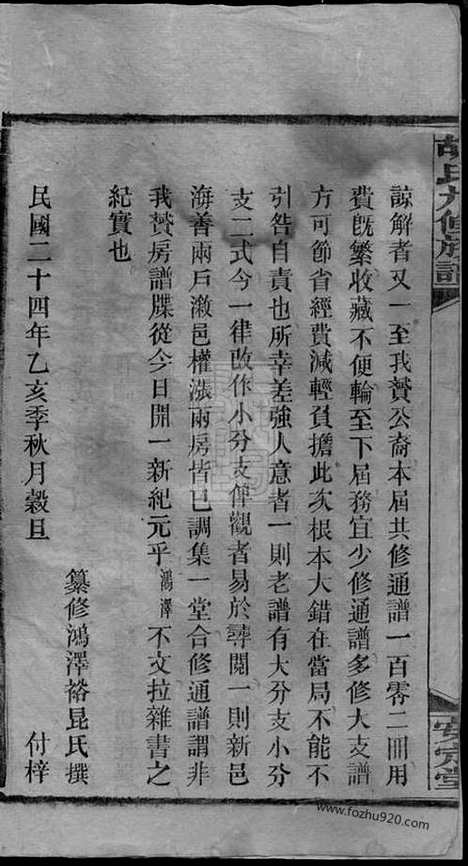 胡氏九修族譜
安定堂
諒解者又一至我贊公裔本届共修通譜一百零二冊用
費既繁收藏不便輪至下届務宜少修通譜多修大支譜
方可節省經費減輕負擔此次根本大錯在當局不能不
引咎自責也所幸差強人意者一則老譜有大分支小分
支二式今一律改作小分支俾觀者易於尋閱一則新邑
海善兩戶漵邑權漲兩房皆已調集一堂合修通譜謂非
我贊房譜牒從今日開一新紀元乎鴻澤不文拉雜書之
紀實也
民國二十四年乙亥季秋月穀旦
纂修鴻澤裕昆氏撰
付梓
www.fozhu920.com